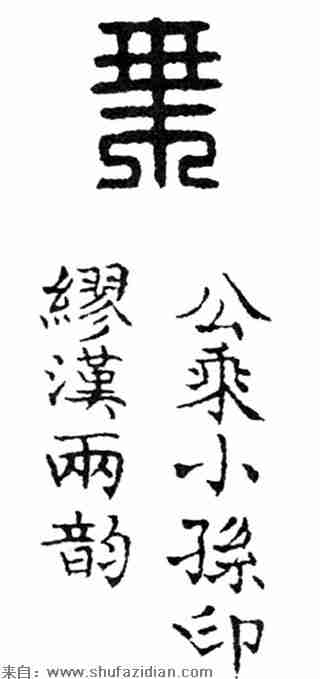 乘
公乘小孫印
繆漢兩韵
来自：www.shufazidian.com